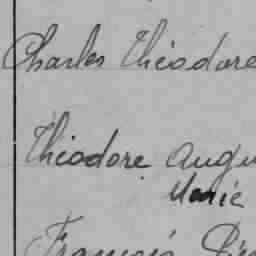 Charles Théodore
Théodore Augu
Marie
François